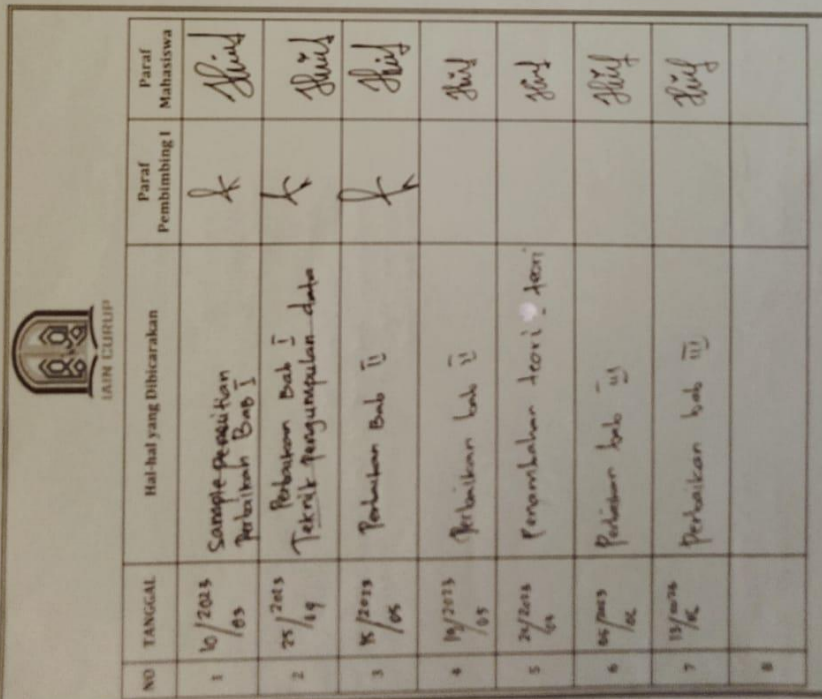 IAIN CURUP
NO TANGGAL Hal-hal yang Dibicarakan Paraf Pembimbing I Paraf Mahasiswa
1 10/2023 /03 Sample penelitian
Perbaikan Bab I
2 25/2023 /09 Perbaikan Bab I
Teknik Pengumpulan data
3 15/2023 /05 Perbaikan Bab II
4 19/2023 /05 Perbaikan bab II
5 Penambahan teori - teori
6 Perbaikan bab III
7 Perbaikan bab III
8